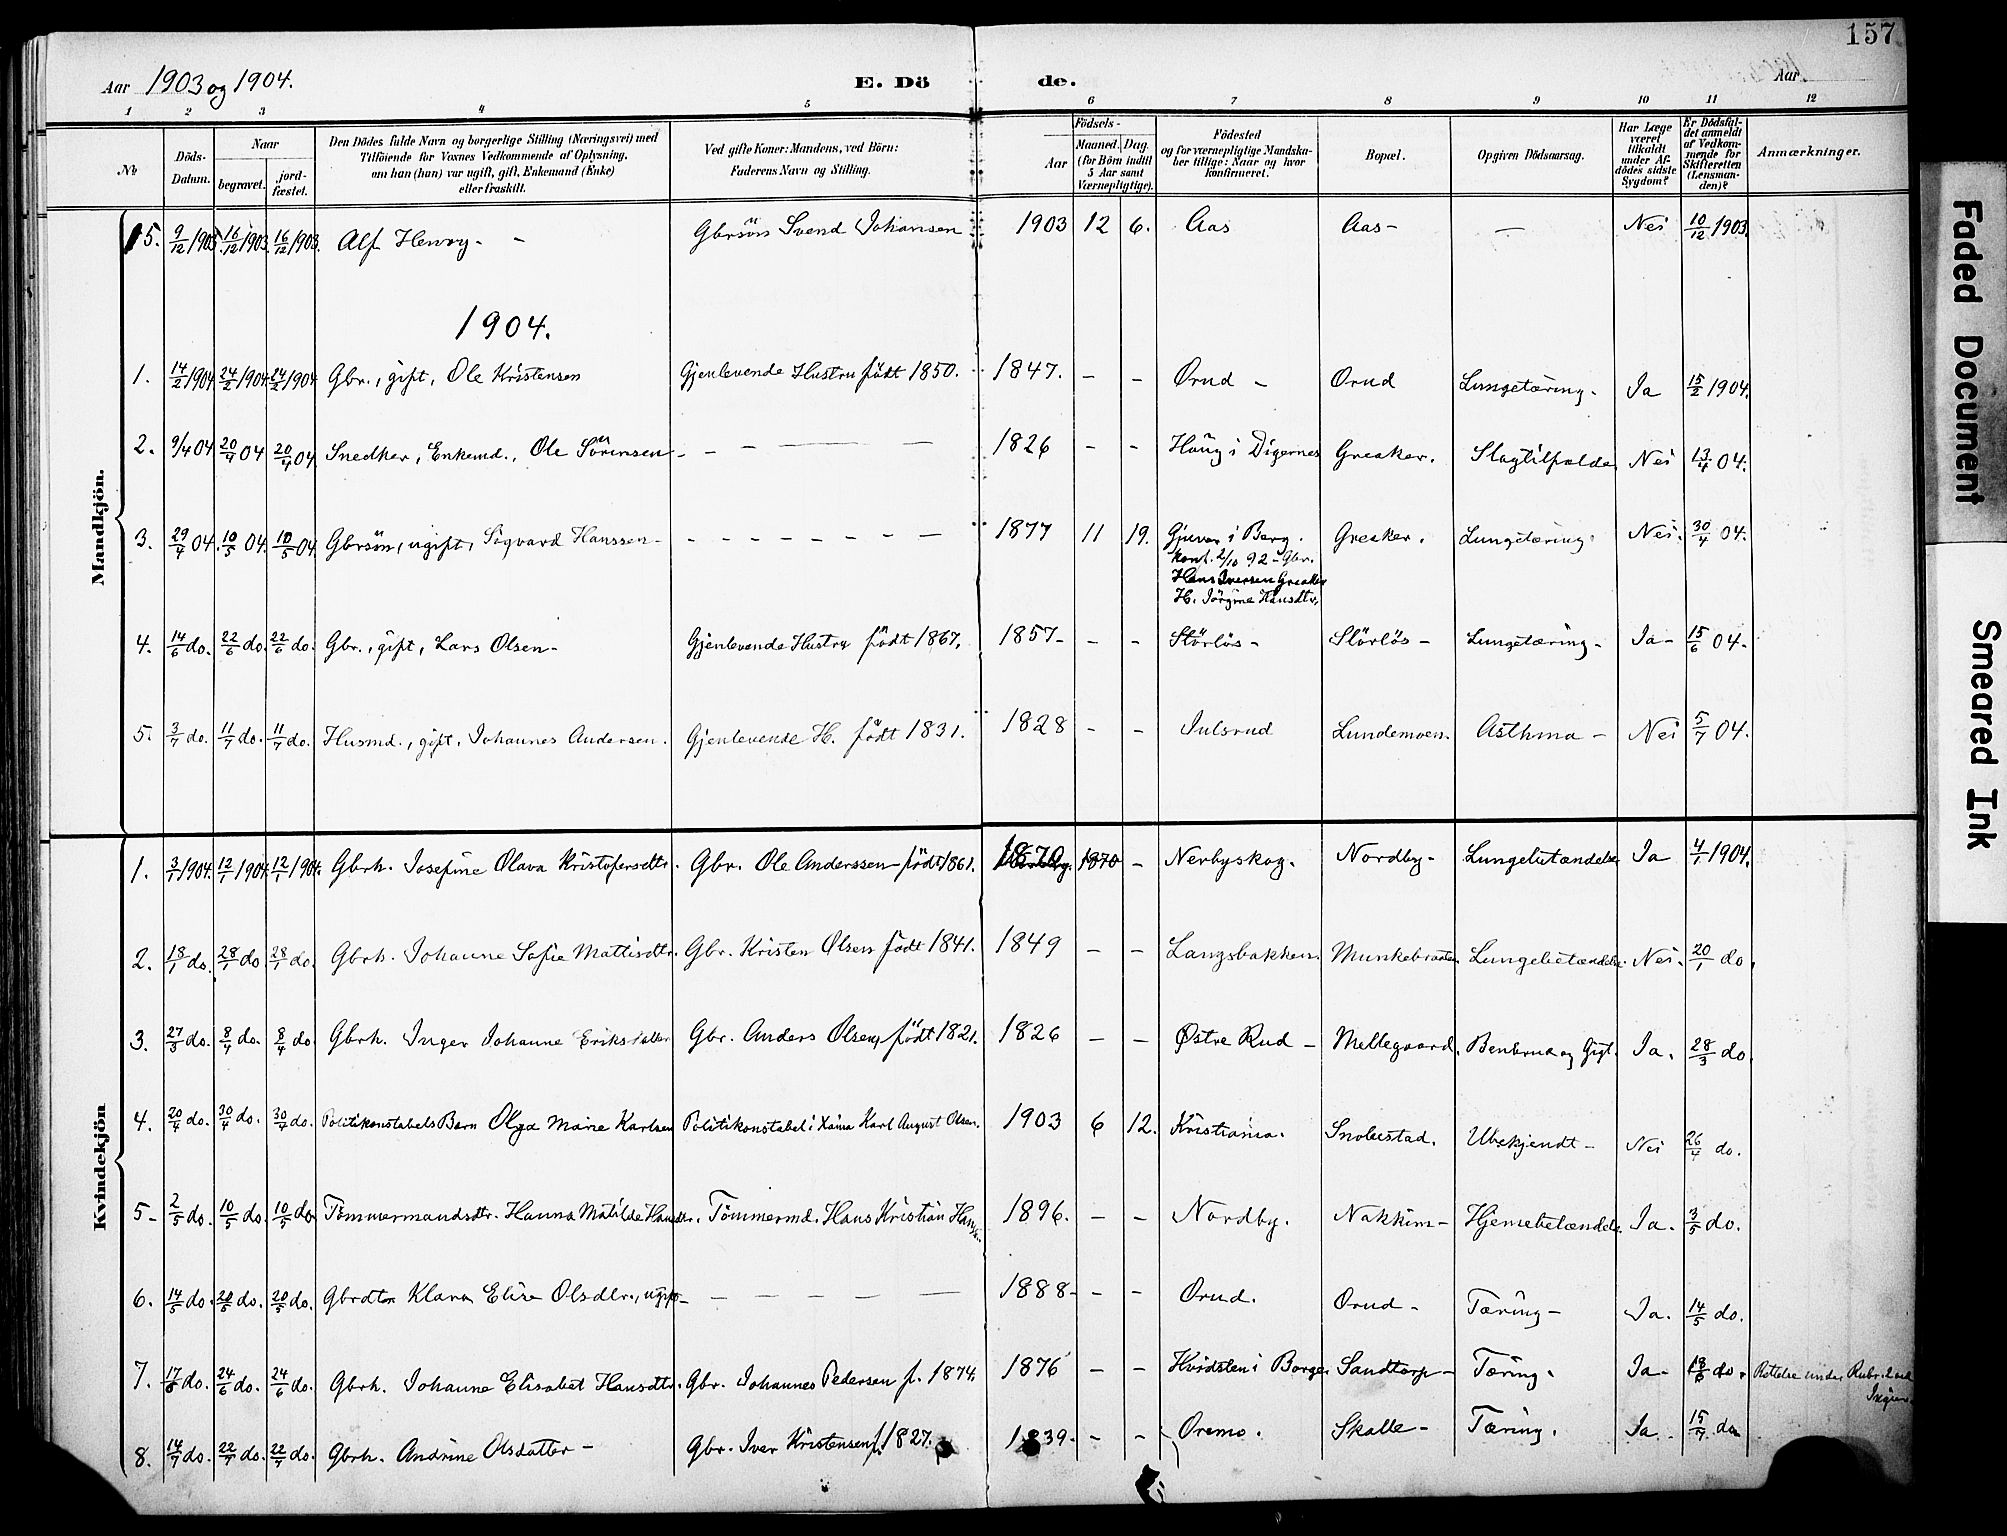 157
Aar 1903 og 1904. E. Döde. Aar
1 2 3 4 5 6 7 8 9 10 11 12
No
Döds-Datum.
Naar
begravet.
jord-fæstet.
Den Dödes fulde Navn og borgerlige Stilling (Næringsvei) med
Tilföiende for Voxnes Vedkommende af Oplysning,
om han (hun) var ugift, gift, Enkemand (Enke)
eller fraskilt.
Ved gifte Koner: Mandens, ved Börn:
Faderens Navn og Stilling.
Födsels-
Aar
Maaned. Dag.
(for Börn indtil
5 Aar samt
Værnepligtige).
Födested
og for værnepligtige Mandska-
ber tillige: Naar og hvor
konfirmeret.
Bopæl.
Opgiven Dödsaarsag.
Har Læge
været
tilkaldt
under Af-
dödes sidste
Sygdom?
Er Dödsfal-
det anmeldt
af Vedkom-
mende for
Skifteretten
(Lensman-
den)?
Anmærkninger.
Mandkjön.
15. 9/12 1903. 16/12 1903. 16/12 1903. Alf Henry - - Gbrsön Svend Johansen 1903 12 6. Aas Aas - — Nei 10/12 1903.
1904.
1. 14/2 1904 24/2 1904 24/2 1904 Gbr., gift, Ole Kristensen Gjenlevende Hustru födt 1850. 1847. - - Orud - Orud Lungetæring. Ja 15/2 1904.
2. 9/4 04 20/4 04 20/4 04. Snedker, Enkemd., Ole Sörensen - - - — — 1826 - - Haug i Digernes Greaker. Slagtilfælde Nei 13/4 04.
3. 29/4 04. 10/5 04. 10/5 04. Gbrsön, ugift, Sigvard Hanssen - - - - - - - - — 1877 11 19. Gjuver i Berg. Greaker. Lungetæring. Nei. 30/4 04.
Konf. 2/10 92 - Gbr.
Hans Iversen Greaker
H. Jörgine Hansdtr.
4. 14/6 do. 22/6 do. 22/6 do. Gbr., gift, Lars Olsen - Gjenlevende Hustru födt 1867. 1857 - - - Störlös - Störlös - Lungetæring - Ja - 15/6 04.
5. 3/7 do. 11/7 do. 11/7 do. Husmd., gift, Johannes Andersen. Gjenlevende H. födt 1831. 1828 - - Julsrud Lundemoen. Asthma - Nei 5/7 04.
Kvindekjön
1. 3/1 1904. 12/1 1904. 12/1 1904. Gbrh. Josefine Olava Kristofersdtr. Gbr. Ole Anderssen - födt 1861. 1870 1870 - Nerbyskog. Nordby - Lungebetændelse Ja 4/1 1904.
2. 18/1 do. 28/1 do 28/1 do. Gbrh. Johanne Sofie Mattisdtr. Gbr. Kristen Olsen födt 1841. 1849 - - Langsbakken. Munkebraaten Lungebetændelse. Nei. 20/1 do.
3. 27/3 do. 8/4 do. 8/4 do Gbrh. Inger Johanne Eriksdatter Gbr. Anders Olsen, födt 1821. 1826 - - Østre Rud - Mellegaard. Benbrud og Gigt. Ja. 28/3 do.
4. 20/4 do. 30/4 do. 30/4 do. Politikonstabels Barn Olga Marie Karlsen Politikonstabel i Xania Karl August Olsen. 1903 6 12. Kristiania. Snobestad. Ubekjendt - Nei 26/4 do.
5 - 2/5 do. 10/5 do. 10/5 do Tömmermandsdtr. Hanna Matilde Hansdtr. Tömmermd. Hans Kristian Hans. 1896. - - Nordby. Nakkim - Hjernebetændelse. Ja. 3/5 do.
6. 14/5 do. 20/5 do. 20/5 do. Gbrdtr Klara Elise Olsdtr., ugift - — — — — — 1888 - - - Orud. Orud - Tæring - Ja. 14/5 do.
7. 17/6 do. 24/6 do. 24/6 do. Gbrh. Johanne Elisabet Hansdtr. Gbr. Johannes Pedersen f. 1874. 1876 - - Hvidsten i Borge. Sandtorp - Tæring. Ja - 18/6 do. Rettelse under Rubr. 2 ved
8. 14/7 do. 22/7 do. 22/7 do. Gbrh. Andrine Olsdatter - Gbr. Iver Kristensen f. 1827. 1839. - - Oremo. Skolle - Tæring. Ja. 15/7 do
Faded Document
Smeared Ink